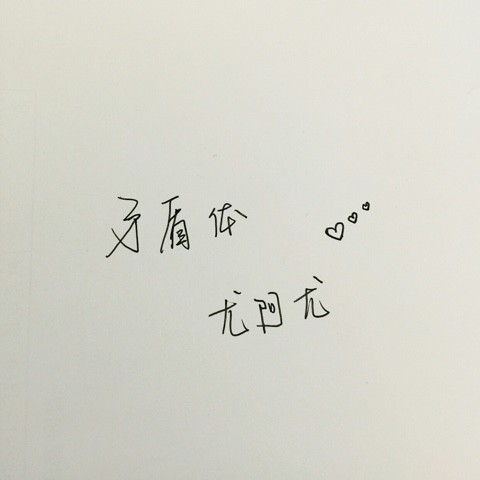 矛盾体
尤阿尤